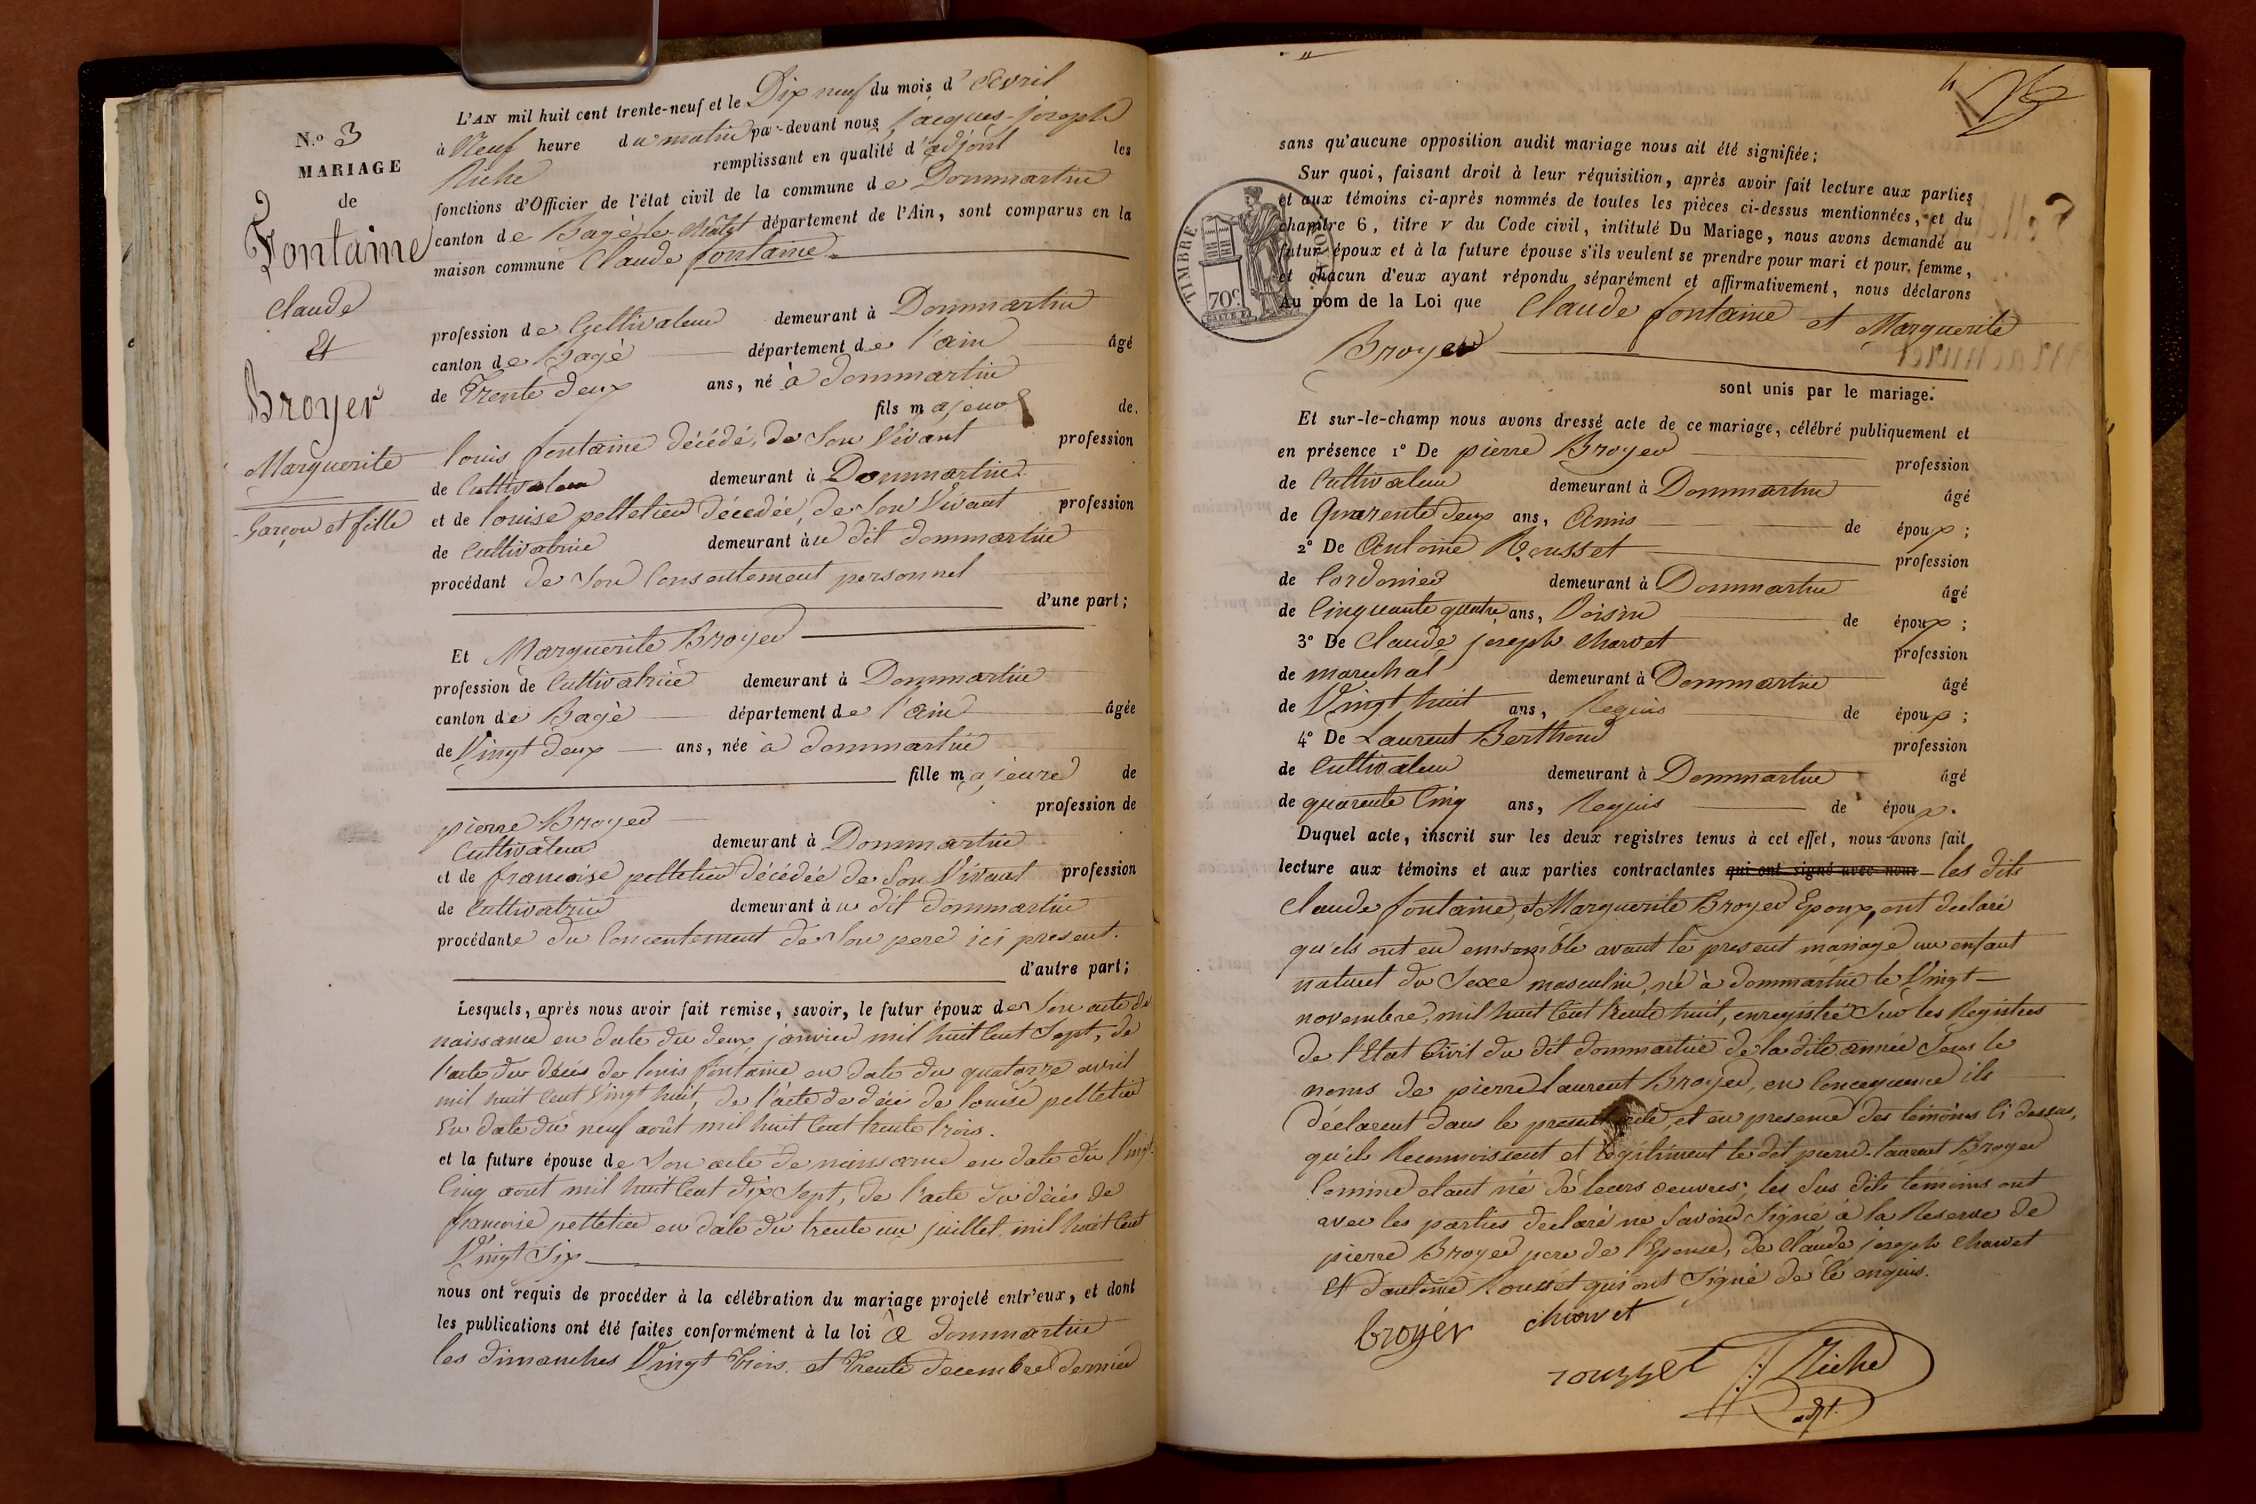 N.o 3
MARIAGE
de
Fontaine
Claude
Et
Broyer
Marguerite
Garçon et fille
L'AN mil huit cent trente-neuf et le Dix neuf du mois d'Avril
à Neuf heure du matin par-devant nous Jacques-joseph
Riche remplissant en qualité d'adjoint les
fonctions d'Officier de l'état civil de la commune de Dommartin
canton de Bagé-le-châtel département de l'Ain, sont comparus en la
maison commune Claude fontaine
profession de Cultivateur demeurant à Dommartin
canton de Bagé département de l'ain âgé
de Trente deux ans, né à dommartin
fils majeur de
louis fontaine décédé, de Son Vivant profession
de Cultivateur demeurant à Dommartin
et de louise pelletier décédée, de Son Vivant profession
de Cultivatrice demeurant au dit dommartin
procédant de Son Consentement personnel
d'une part;
Et Marguerite Broyer
profession de Cultivatrice demeurant à Dommartin
canton de Bagé département de l'ain âgée
de Vingt deux ans, née à dommartin
fille majeure de
pierre Broyer profession de
Cultivateur demeurant à Dommartin
et de francoise pelletier décédée de Son Vivant profession
de Cultivatrice demeurant au dit dommartin
procédante du Concentement de Son pere ici present.
d'autre part;
Lesquels, après nous avoir fait remise, savoir, le futur époux de Son acte de
naissance en date du deux janvier mil huit Cent Sept, de
l'acte du décés de louis fontaine en date du quatorze avril
mil huit Cent Vingt huit, de l'acte de décé de louise pelletier
En date du neuf août mil huit Cent trente trois.
et la future épouse de Son acte de naissance en date du Vingt-
Cinq aout mil huit Cent dix Sept, de l'acte du décés de
francoise pelletier en date du trente un juillet mil huit Cent
Vingt Six
nous ont requis de procéder à la célébration du mariage projeté entr'eux, et dont
les publications ont été faites conformément à la loi à dommartin
les dimanches Vingt trois et trente decembre dernier
sans qu'aucune opposition audit mariage nous ait été signifiée;
Sur quoi, faisant droit à leur réquisition, après avoir fait lecture aux parties
et aux témoins ci-après nommés de toutes les pièces ci-dessus mentionnées, et du
chapitre 6, titre V du Code civil, intitulé Du Mariage, nous avons demandé au
futur époux et à la future épouse s'ils veulent se prendre pour mari et pour femme,
et chacun d'eux ayant répondu séparément et affirmativement, nous déclarons
Au nom de la Loi que Claude fontaine et Marguerite
Broyer
TIMBRE ROYAL
70c
sont unis par le mariage.
Et sur-le-champ nous avons dressé acte de ce mariage, célébré publiquement et
en présence 1° De pierre Broyer profession
de Cultivateur demeurant à Dommartin âgé
de Quarente deux ans, Amis de époux;
2° De Antoine Rousset profession
de Cordonier demeurant à Dommartin âgé
de Cinquante quatre ans, Voisin de époux;
3° De Claude joseph Charvet profession
de marechal demeurant à Dommartin âgé
de Vingt huit ans, Requis de époux;
4° De Laurent Berthoud profession
de Cultivateur demeurant à Dommartin âgé
de quarente Cinq ans, Requis de époux.
Duquel acte, inscrit sur les deux registres tenus à cet effet, nous avons fait
lecture aux témoins et aux parties contractantes qui ont signé avec nous les dits
Claude fontaine, et Marguerite Broyer Epoux, ont declaré
qu'ils ont eu emsemble avant le present mariage un enfant
naturel du Sexe masculin, né à dommartin le Vingt
novembre, mil huit Cent trente huit, enregistré Sur les Registres
de l'Etat Civil du dit dommartin de la dite année Sous le
noms de pierre laurent Broyer, en Concequence ils
déclarent dans le present acte, et en presence des témoins Ci dessus,
qu'ils Reconnoissent et légitiment le dit pierre-laurent Broyer
Comme étant né de leurs oeuvres; les Sus dits témoins ont
avec les parties declaré ne Savoir Signé à la Reserve de
pierre Broyer pere de l'Epouse, de Claude joseph Charvet
Et d'antoine Rousset qui ont Signé de Ce enquis.
broyer charvet
rousset Riche
adjt.